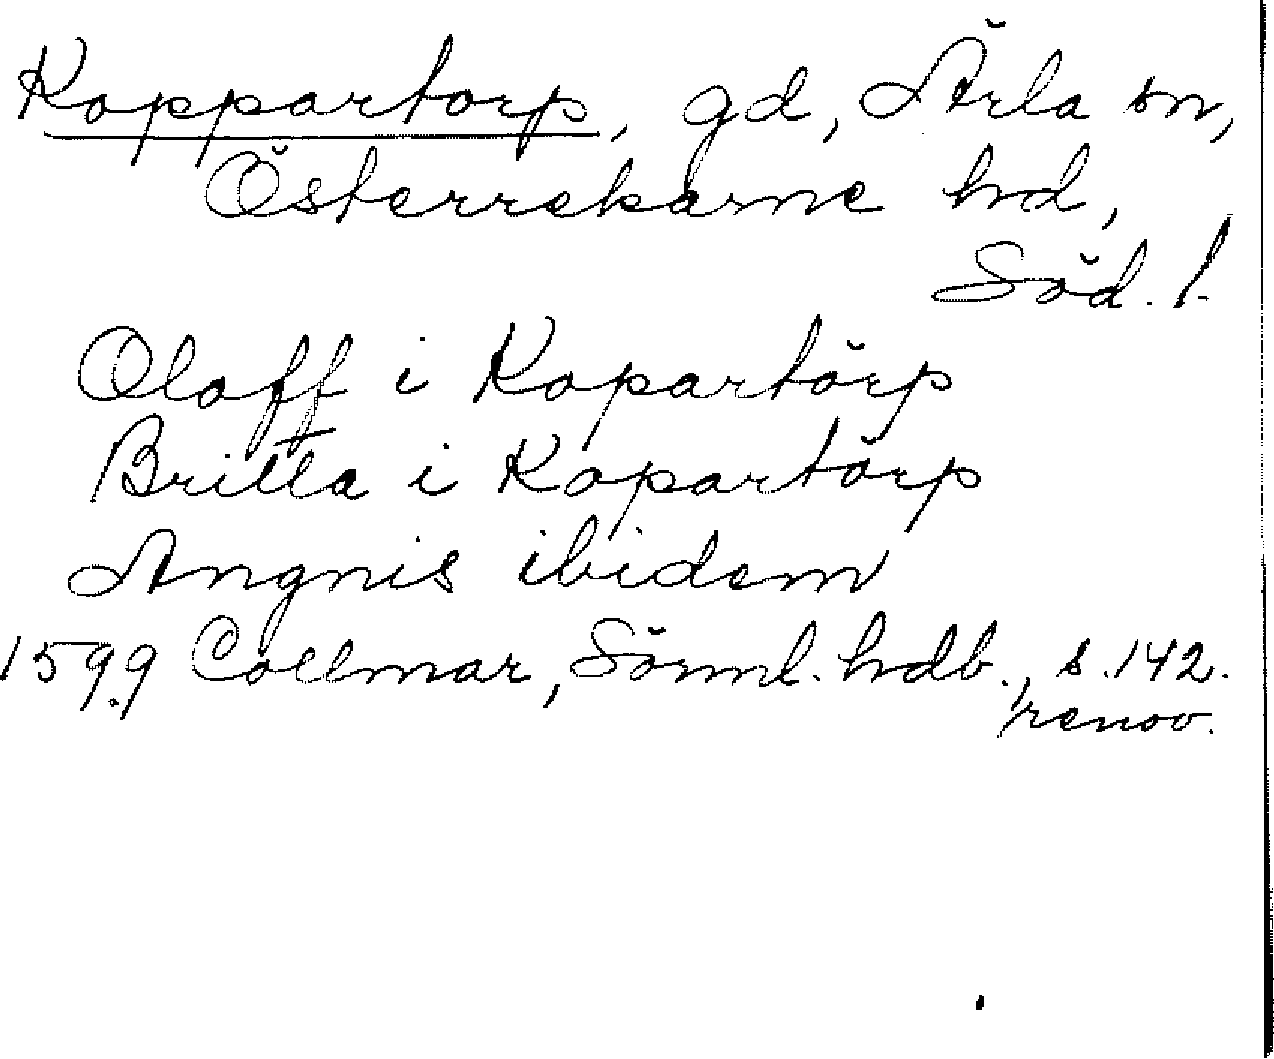 Koppartorp, gd, Ärla sn,
Österrekarne hd,
Söd. l.
Oloff i Kopartörp
Britta i Kopartörp
Angnis ibidem
1599 Collmar, Sörml. hdb., s. 142.
renov.